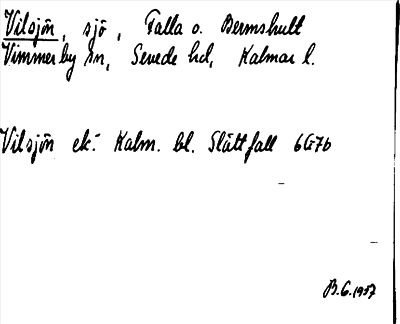 Vilsjön, sjö, Falla o. Bermshult
Vimmerby sn, Sevede hd, Kalmar l.
Vilsjön ek: Kalm. bl. Slättfall 6G7b
B.G. 1957